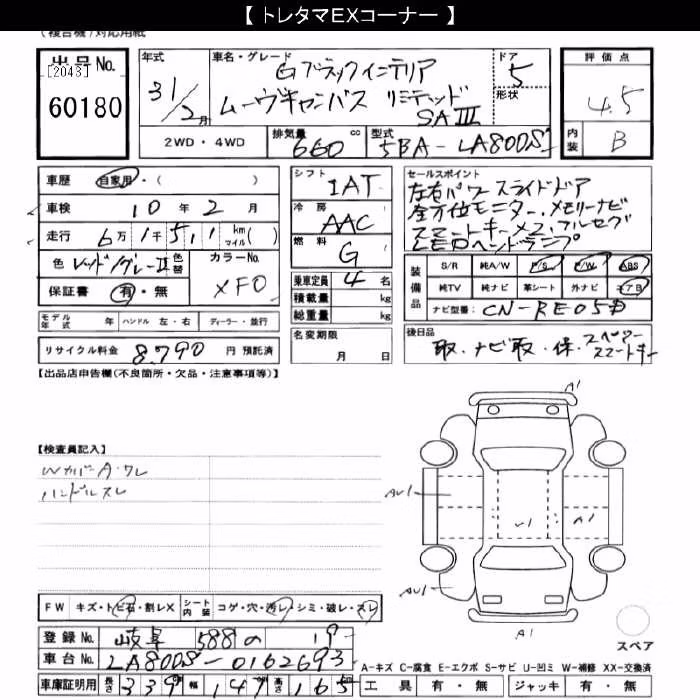 【 トレタマEXコーナー 】
(複合機/対応用紙
出品 No.
[2043]
60180
年式
31/2月
車名・グレード
G ブラックインテリア
ムーヴキャンバス リミテッド
SAⅢ
ドア
5
形状
評価点
4.5
内装 B
2WD・4WD
排気量 660 cc
型式 5BA-LA800S
車歴 自家用・( )
車検 10年 2月
走行 6万 1千 511 km マイル( )
色 レッド/グレーⅡ 色替
カラーNo. XF0
保証書 有・無
モデル年式 年 ハンドル 左・右 ディーラー・並行
リサイクル料金 8,790 円 預託済
シフト IAT
冷房 AAC
燃料 G
乗車定員 4 名
積載量 kg
総重量 kg
名変期限 月 日
セールスポイント
左右パワースライドドア
全方位モニター、メモリーナビ
スマートキー×2、フルセグ
LEDヘッドランプ
装備品
S/R 純A/W P/S P/W ABS
純TV 純ナビ 革シート 外ナビ エアB
ナビ型番: CN-RE05D
後日品
取、ナビ取・保・スペアースマートキー
【出品店申告欄(不良箇所・欠品・注意事項等)】
【検査員記入】
Wカバー A・ワレ
ハンドルスレ
A1
AU1
U1
A1
A1
AU1
A1
スペア
FW キズ・トビ石・割レX シート内装 コゲ・穴・汚レ・シミ・破レ・スレ
登録 No. 岐阜 588 の 19
車台 No. LA800S-0162693
A-キズ C-腐食 E-エクボ S-サビ U-凹ミ W-補修 XX-交換済
車庫証明用 長さ 339 幅 147 高さ 165
工具 有・無 ジャッキ 有・無